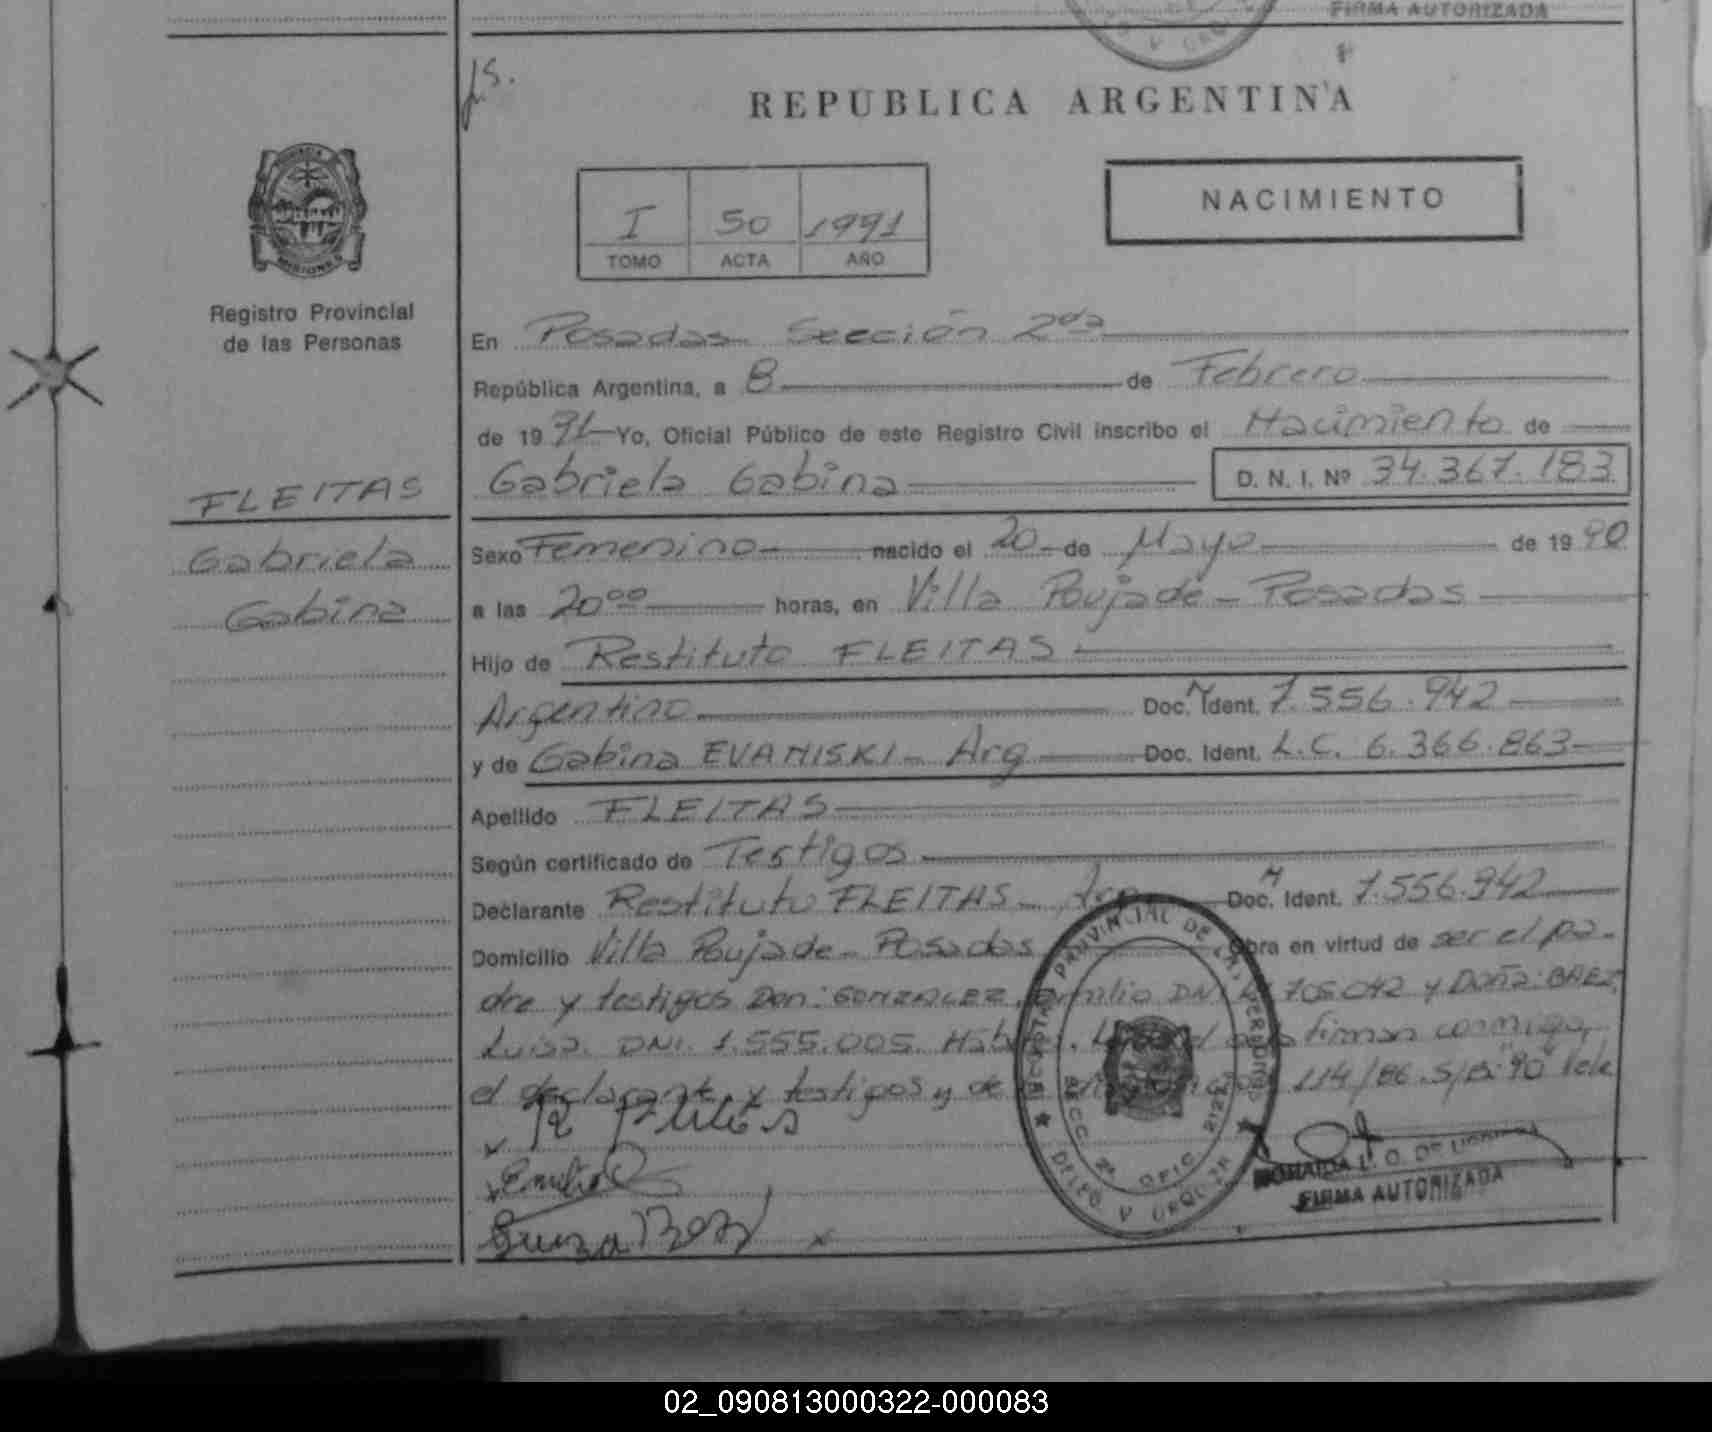 FIRMA AUTORIZADA
REPUBLICA ARGENTINA
I 50 1991
TOMO ACTA AÑO
NACIMIENTO
PROVINCIA
MISIONES
Registro Provincial
de las Personas
FLEITAS
Gabriela
Gabina
En Posadas Sección 2da
República Argentina, a 8 de Febrero
de 1991 Yo, Oficial Público de este Registro Civil inscribo el Nacimiento de
Gabriela Gabina D. N. I. Nº 34.367.183
Sexo Femenino nacido el 20 de Mayo de 1990
a las 20⁰⁰ horas, en Villa Poujade - Posadas
Hijo de Restituto FLEITAS
Argentino Doc. M Ident. 7.556.942
y de Gabina EVANISKI - Arg Doc. Ident. L.C. 6.366.863
Apellido FLEITAS
Según certificado de Testigos
Declarante Restituto FLEITAS - Arg Doc. M Ident. 7.556.942
Domicilio Villa Poujade - Posadas Obra en virtud de ser el pa-
dre y testigos Don: GONZALEZ, Emilio DNI 705.042 y Doña: BAEZ,
Luisa. DNI. 1.555.005. firman conmigo,
el declarante y testigos y de 114/86. S/B: "90" Vale
PROVINCIAL DE
SECC. 2ª OFIC. 2122
DELEG. V. URQUIZA
FIRMA AUTORIZADA
02_090813000322-000083